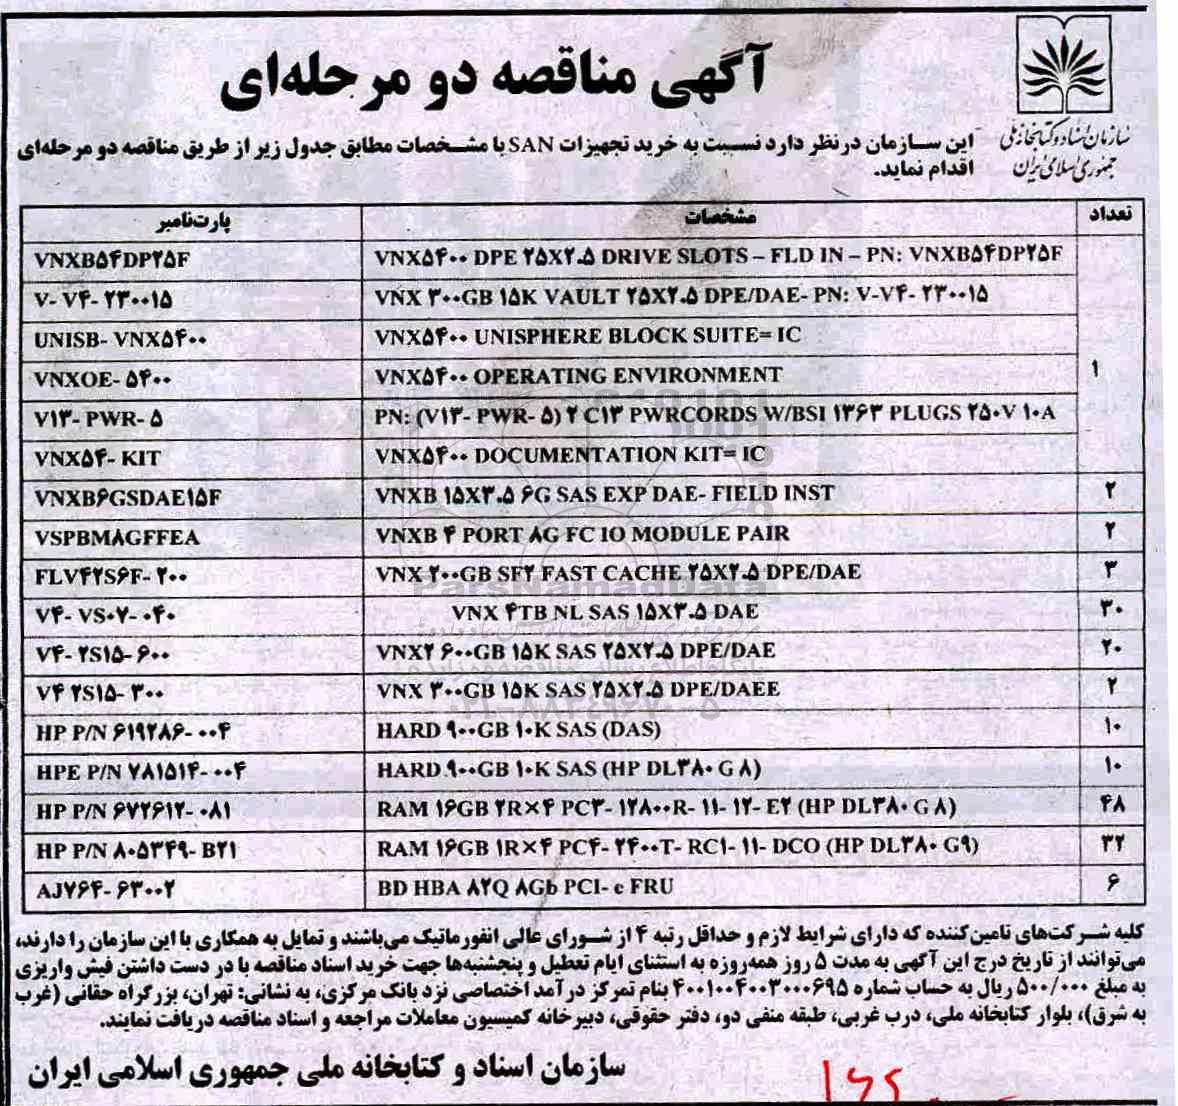 آگهی مناقصه دو مرحله‌ای
سازمان اسناد و کتابخانه ملی
جمهوری اسلامی ایران
این سـازمان درنظر دارد نسبت به خرید تجهیزات SAN با مشخصات مطابق جدول زیر از طریق مناقصه دو مرحله‌ای
اقدام نماید.
تعداد مشخصات پارت‌نامبر
VNX۵۴۰۰ DPE ۲۵X۲.۵ DRIVE SLOTS – FLD IN – PN: VNXB۵۴DP۲۵F VNXB۵۴DP۲۵F
VNX ۳۰۰GB ۱۵K VAULT ۲۵X۲.۵ DPE/DAE- PN: V-V۴- ۲۳۰۰۱۵ V- V۴- ۲۳۰۰۱۵
VNX۵۴۰۰ UNISPHERE BLOCK SUITE= IC UNISB- VNX۵۴۰۰
۱ VNX۵۴۰۰ OPERATING ENVIRONMENT VNXOE- ۵۴۰۰
PN: (V۱۳- PWR- ۵) ۲ C۱۳ PWRCORDS W/BSI ۱۳۶۳ PLUGS ۲۵۰V ۱۰A V۱۳- PWR- ۵
VNX۵۴۰۰ DOCUMENTATION KIT= IC VNX۵۴- KIT
۲ VNXB ۱۵X۳.۵ ۶G SAS EXP DAE- FIELD INST VNXB۶GSDAE۱۵F
۲ VNXB ۴ PORT ۸G FC IO MODULE PAIR VSPBM۸GFFEA
۳ VNX ۲۰۰GB SF۲ FAST CACHE ۲۵X۲.۵ DPE/DAE FLV۴۲S۶F- ۲۰۰
۳۰ VNX ۴TB NL SAS ۱۵X۳.۵ DAE V۴- VS۰۷- ۰۴۰
۲۰ VNX۲ ۶۰۰GB ۱۵K SAS ۲۵X۲.۵ DPE/DAE V۴- ۲S۱۵- ۶۰۰
۲ VNX ۳۰۰GB ۱۵K SAS ۲۵X۲.۵ DPE/DAEE V۴ ۲S۱۵- ۳۰۰
۱۰ HARD ۹۰۰GB ۱۰K SAS (DAS) HP P/N ۶۱۹۲۸۶- ۰۰۴
۱۰ HARD ۹۰۰GB ۱۰K SAS (HP DL۳۸۰ G ۸) HPE P/N ۷۸۱۵۱۴- ۰۰۴
۴۸ RAM ۱۶GB ۲R×۴ PC۳- ۱۲۸۰۰R- ۱۱- ۱۲- E۲ (HP DL۳۸۰ G ۸) HP P/N ۶۷۲۶۱۲- ۰۸۱
۳۲ RAM ۱۶GB ۱R×۴ PC۴- ۲۴۰۰T- RC۱- ۱۱- DCO (HP DL۳۸۰ G۹) HP P/N ۸۰۵۳۴۹- B۲۱
۶ BD HBA ۸۲Q ۸Gb PCI- e FRU AJ۷۶۴- ۶۳۰۰۲
ParsNamadData
۰۲۱-۸۸۳۴۹۶۷۰-۵
کلیه شـرکت‌های تامین‌کننده که دارای شرایط لازم و حداقل رتبه ۴ از شـورای عالی انفورماتیک می‌باشند و تمایل به همکاری با این سازمان را دارند،
می‌توانند از تاریخ درج این آگهی به مدت ۵ روز همه‌روزه به استثنای ایام تعطیل و پنجشنبه‌ها جهت خرید اسناد مناقصه با در دست داشتن فیش واریزی
به مبلغ ۵۰۰/۰۰۰ ریال به حساب شماره ۴۰۰۱۰۰۴۰۰۳۰۰۰۶۹۵ بنام تمرکز درآمد اختصاصی نزد بانک مرکزی، به نشانی: تهران، بزرگراه حقانی (غرب
به شرق)، بلوار کتابخانه ملی، درب غربی، طبقه منفی دو، دفتر حقوقی، دبیرخانه کمیسیون معاملات مراجعه و اسناد مناقصه دریافت نمایند.
سازمان اسناد و کتابخانه ملی جمهوری اسلامی ایران